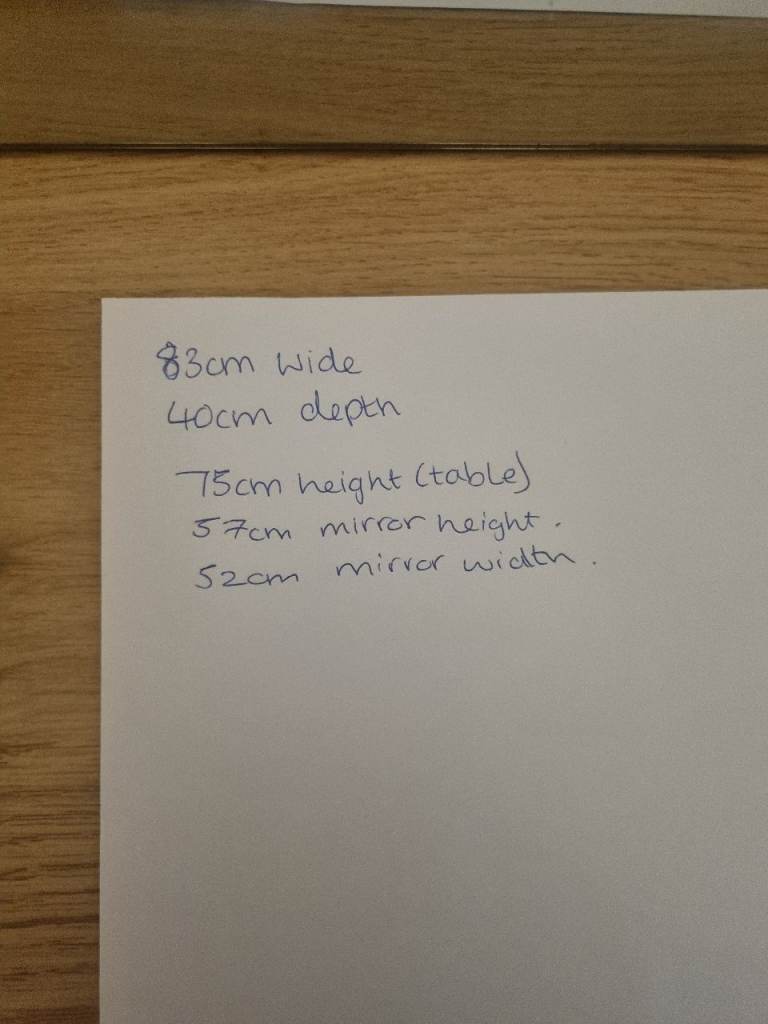 83cm wide
40cm depth
75cm height (table)
57cm mirror height.
52cm mirror width.